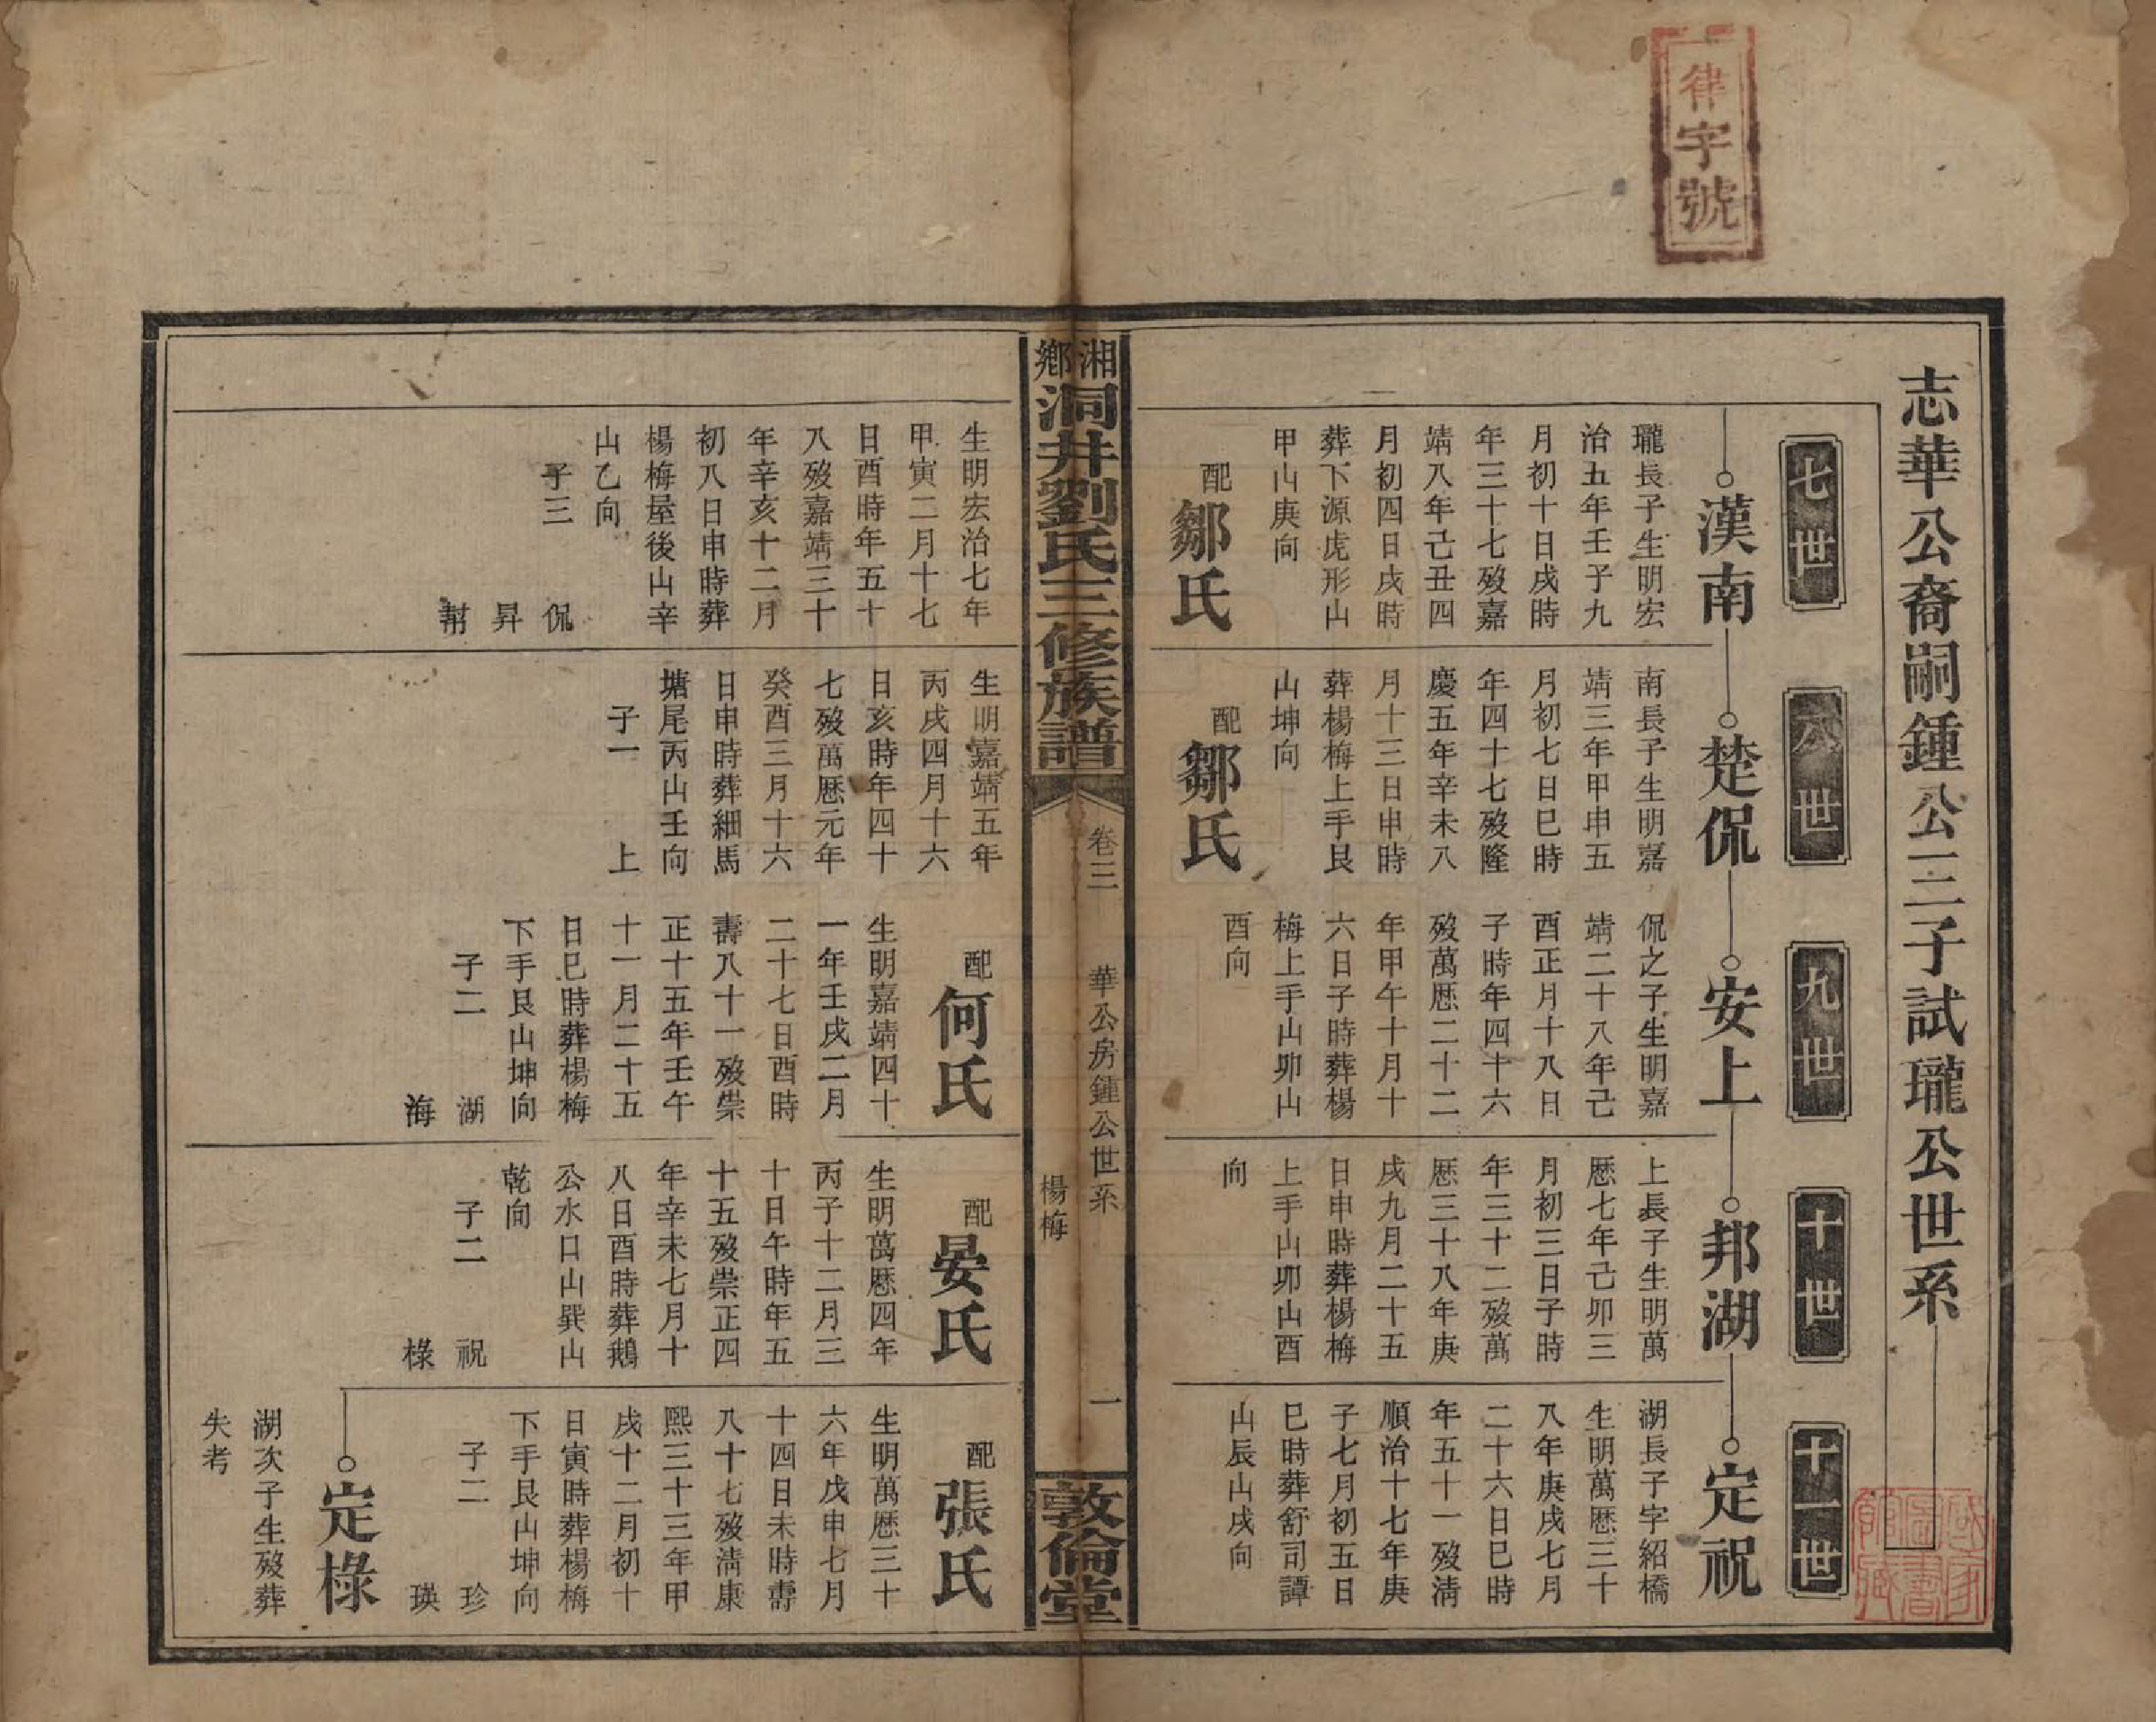 律字號
志華公裔嗣鍾公三子試瓏公世系
七世
漢南
瓏長子生明宏
治五年壬子九
月初十日戌時
年三十七歿嘉
靖八年己丑四
月初四日戌時
葬下源虎形山
甲山庚向
配鄒氏
八世
楚侃
南長子生明嘉
靖三年甲申五
月初七日巳時
年四十七歿隆
慶五年辛未八
月十三日申時
葬楊梅上手艮
山坤向
配鄒氏
九世
安上
侃之子生明嘉
靖二十八年己
酉正月十八日
子時年四十六
歿萬厯二十二
年甲午十月十
六日子時葬楊
梅上手山卯山
酉向
十世
邦湖
上長子生明萬
厯七年己卯三
月初三日子時
年三十二歿萬
厯三十八年庚
戌九月二十五
日申時葬楊梅
上手山卯山酉
向
十一世
定祝
湖長子字紹橋
生明萬厯三十
八年庚戌七月
二十六日巳時
年五十一歿清
順治十七年庚
子七月初五日
巳時葬舒司譚
山辰山戌向
湘鄉洞井劉氏三修族譜
卷三
華公房鍾公世系
楊梅
一
敦倫堂
生明宏治七年
甲寅二月十七
日酉時年五十
八歿嘉靖三十
年辛亥十二月
初八日申時葬
楊梅屋後山辛
山乙向
子三 侃
昇
幇
生明嘉靖五年
丙戌四月十六
日亥時年四十
七歿萬厯元年
癸酉三月十六
日申時葬細馬
塘尾丙山壬向
子一 上
配何氏
生明嘉靖四十
一年壬戌二月
二十七日酉時
壽八十一歿崇
正十五年壬午
十一月二十五
日巳時葬楊梅
下手艮山坤向
子二 湖
海
配晏氏
生明萬厯四年
丙子十二月三
十日午時年五
十五歿崇正四
年辛未七月十
八日酉時葬鵝
公水口山巽山
乾向
子二 祝
椂
配張氏
生明萬厯三十
六年戊申七月
十四日未時壽
八十七歿清康
熙三十三年甲
戌十二月初十
日寅時葬楊梅
下手艮山坤向
子二 珍
瑛
定椂
湖次子生歿葬
失考
國家圖書館藏